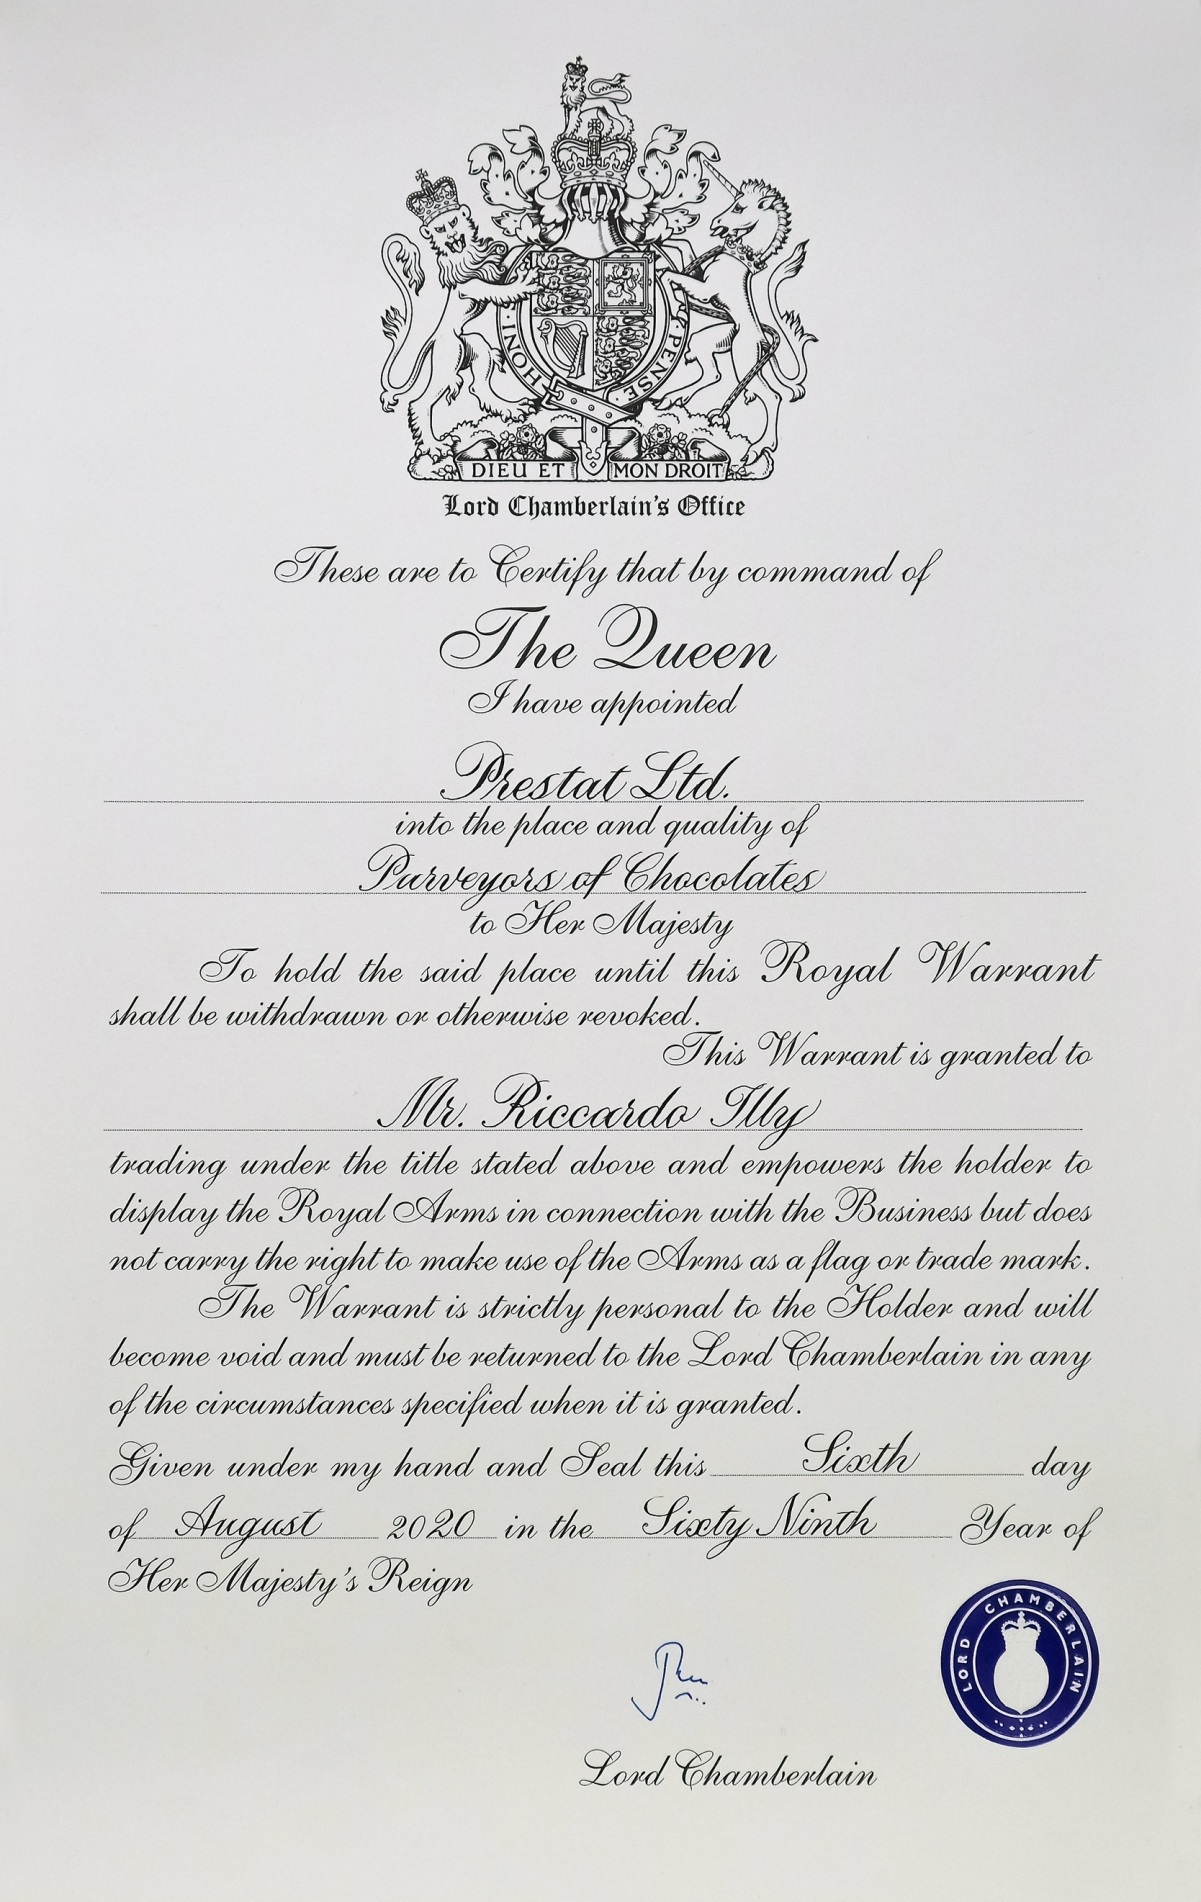 HONI · Y · PENSE ·
DIEU ET MON DROIT
Lord Chamberlain's Office
These are to Certify that by command of
The Queen
I have appointed
Prestat Ltd.
into the place and quality of
Purveyors of Chocolates
to Her Majesty
To hold the said place until this Royal Warrant
shall be withdrawn or otherwise revoked.
This Warrant is granted to
Mr. Riccardo Illy
trading under the title stated above and empowers the holder to
display the Royal Arms in connection with the Business but does
not carry the right to make use of the Arms as a flag or trade mark.
The Warrant is strictly personal to the Holder and will
become void and must be returned to the Lord Chamberlain in any
of the circumstances specified when it is granted.
Given under my hand and Seal this Sixth day
of August 2020 in the Sixty Ninth Year of
Her Majesty's Reign
LORD CHAMBERLAIN
Lord Chamberlain